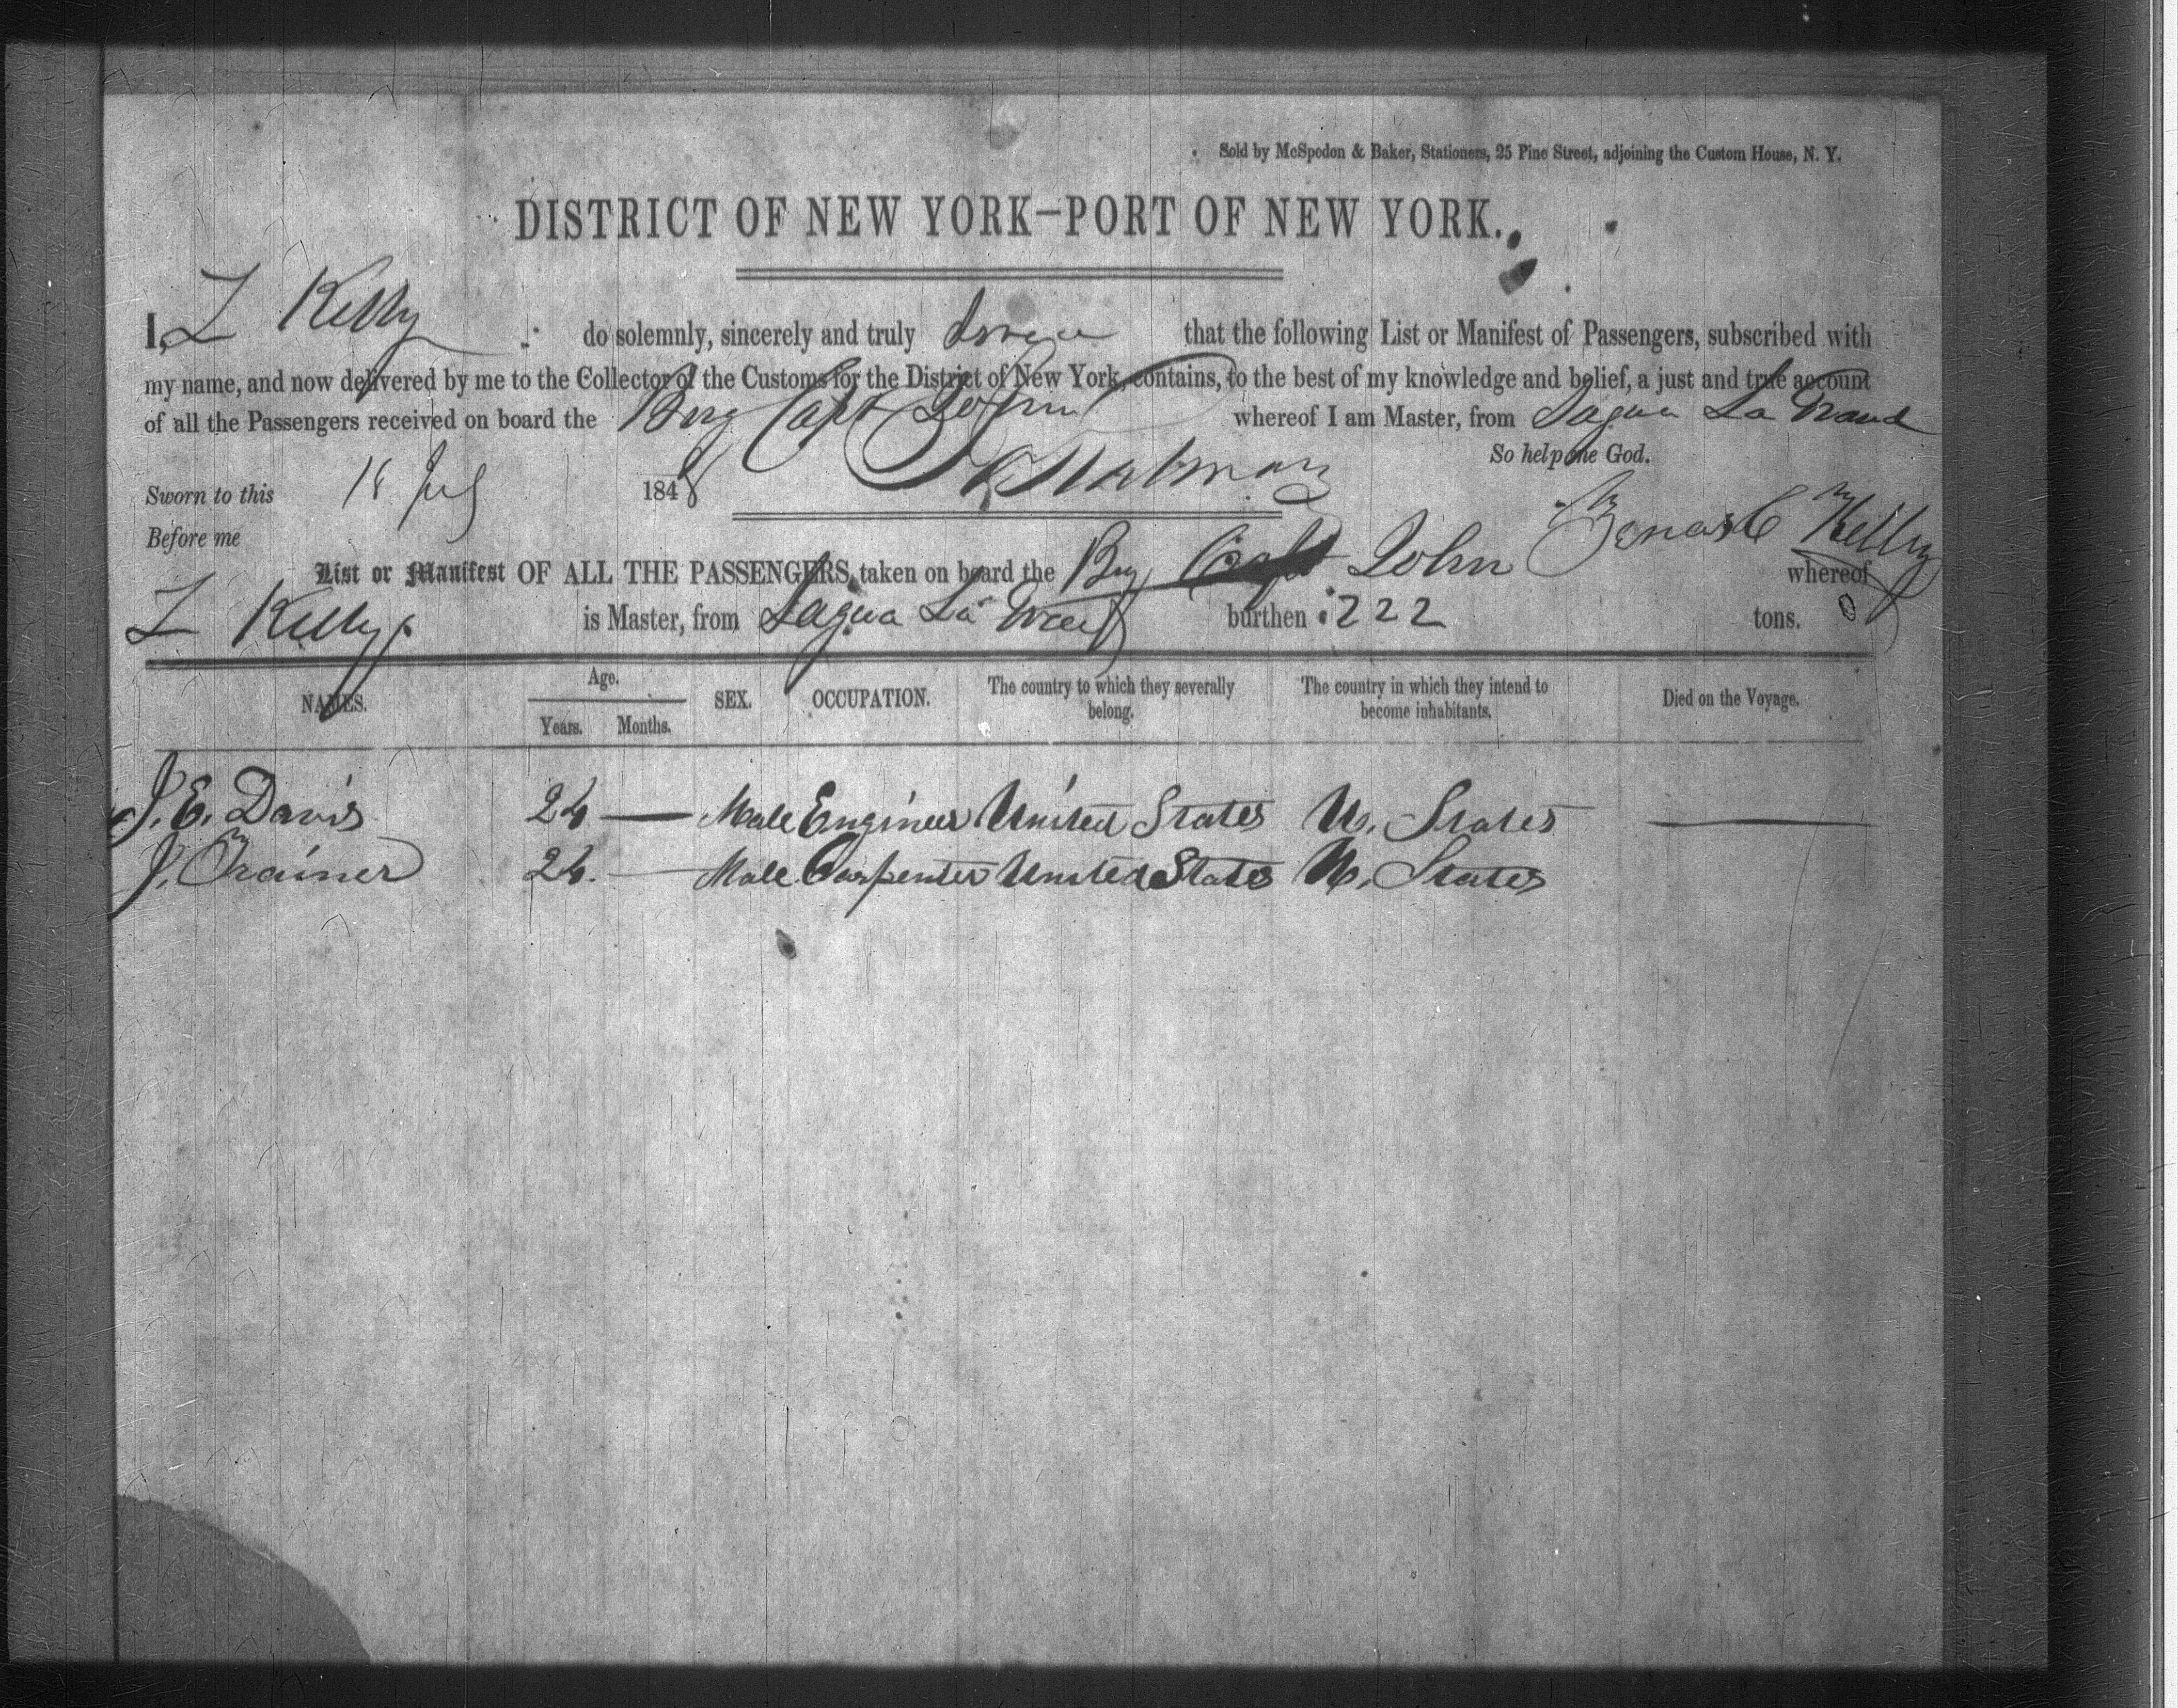 Sold by McSpedon & Baker, Stationers, 25 Pine Street, adjoining the Custom House, N. Y.
DISTRICT OF NEW YORK—PORT OF NEW YORK.
I, Z Kelly do solemnly, sincerely and truly swear that the following List or Manifest of Passengers, subscribed with
my name, and now delivered by me to the Collector of the Customs for the District of New York, contains, to the best of my knowledge and belief, a just and true account
of all the Passengers received on board the Brig Capt John whereof I am Master, from Sagua La Grand
So help me God.
Sworn to this 18 July 1848
Before me
Zenas C Kelley
List or Manifest OF ALL THE PASSENGERS, taken on board the Brig Capt John whereof
Z Kelly is Master, from Sagua La Grand burthen 222 tons.
NAMES. Age. Years. Months. SEX. OCCUPATION. The country to which they severally belong. The country in which they intend to become inhabitants. Died on the Voyage.
J. E. Davis 24 — Male Engineer United States U. States —
J. Trainer 24. — Male Carpenter United States U. States